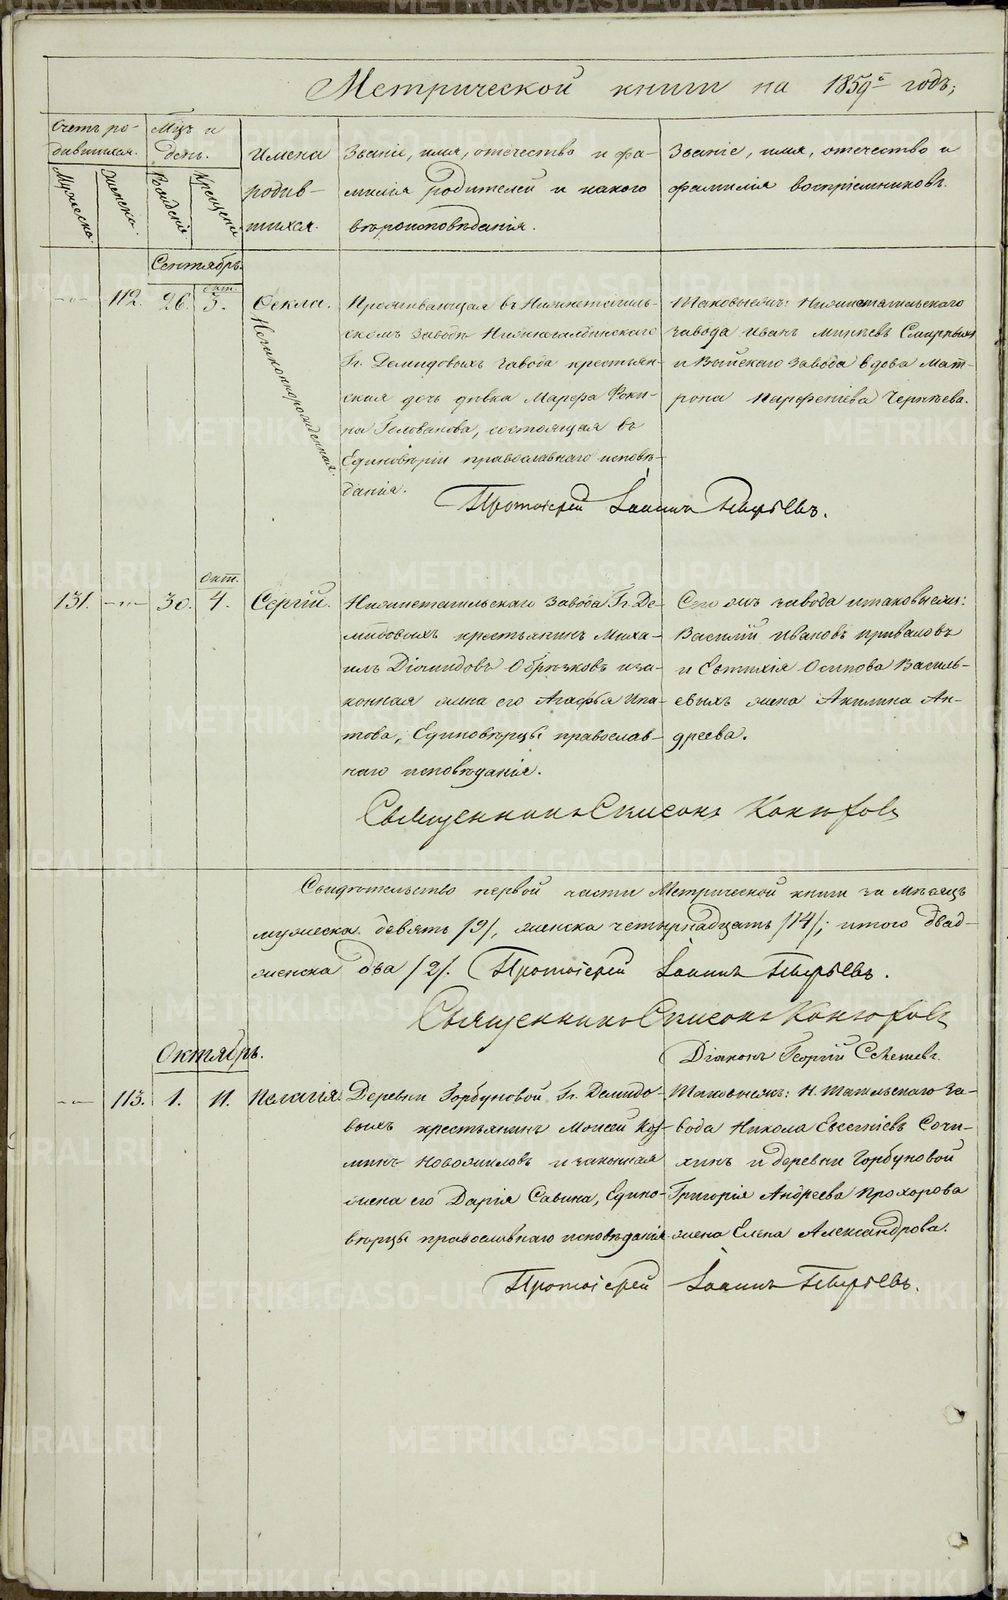 Метрической книги на 1859й годъ;
Счетъ ро-
дившихся.
Мцъ и
день.
Мужеска.
Женска.
Рожденія
Крещенія
Имена
родив-
шихся.
Званіе, имя, отечество и фа-
милія родителей и какого
вѣроисповѣданія.
Званіе, имя, отечество и
фамилія воспріемниковъ.
Сентябрь.
112. 26. окт. 3. Ѳекла.
Незаконнорожденная.
Проживающая въ Нижнетагиль-
скомъ заводѣ
Гг. Демидовыхъ завода крестьян-
ская дочь дѣвка Марѳа Фоки-
на Голованова, состоящая въ
Единовѣріи православнаго исповѣ-
данія.
Таковыемъ: Нижнетагильскаго
завода Иванъ
и Выйскаго завода вдова Мат-
рона Парфентіева
Протоіерей Іоаннъ
131. 30. окт. 4. Сергій.
Нижнетагильскаго завода Гг. Де-
мидовыхъ крестьянинъ Миха-
илъ Діомидовъ Обрѣзковъ и за-
конная жена его Агафья Ипа-
това, Единовѣрцы православ-
наго исповѣданія.
Сего жъ завода и таковыемъ:
Василій Ивановъ Приваловъ
и Евтихія Осипова Василь-
евыхъ жена Акилина Ан-
дреева.
Священникъ Конюховъ
Свидѣтельство первой части Метрической книги за мѣсяцъ
мужеска девять /9/, женска четырнадцать /14/; итого двад-
женска два /2/. Протоіерей Іоаннъ
Священникъ Конюховъ
Діаконъ Георгій
Октябрь.
113. 1. 11. Пелагія.
Деревни Горбуновой Гг. Демидо-
выхъ крестьянинъ Моисей Коз-
минъ Новожиловъ и законная
жена его Дарія Савина, Едино-
вѣрцы православнаго исповѣданія
Таковыемъ: Н. Тагильскаго за-
вода Никола Евсегніевъ Сочи-
хинъ и деревни Горбуновой
Григорія Андреева Прохорова
жена Елена Александрова.
Протоіерей Іоаннъ
METRIKI.GASO-URAL.RU